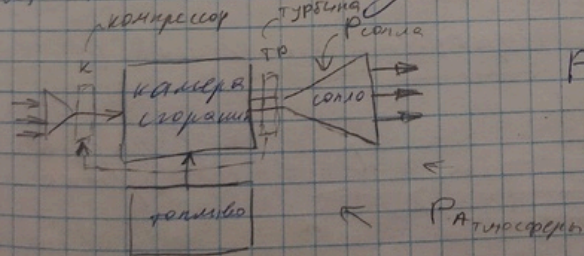 компрессор
турбина
Pсопла
К
ТР
камера
сгорания
сопло
топливо
PАтмосферы